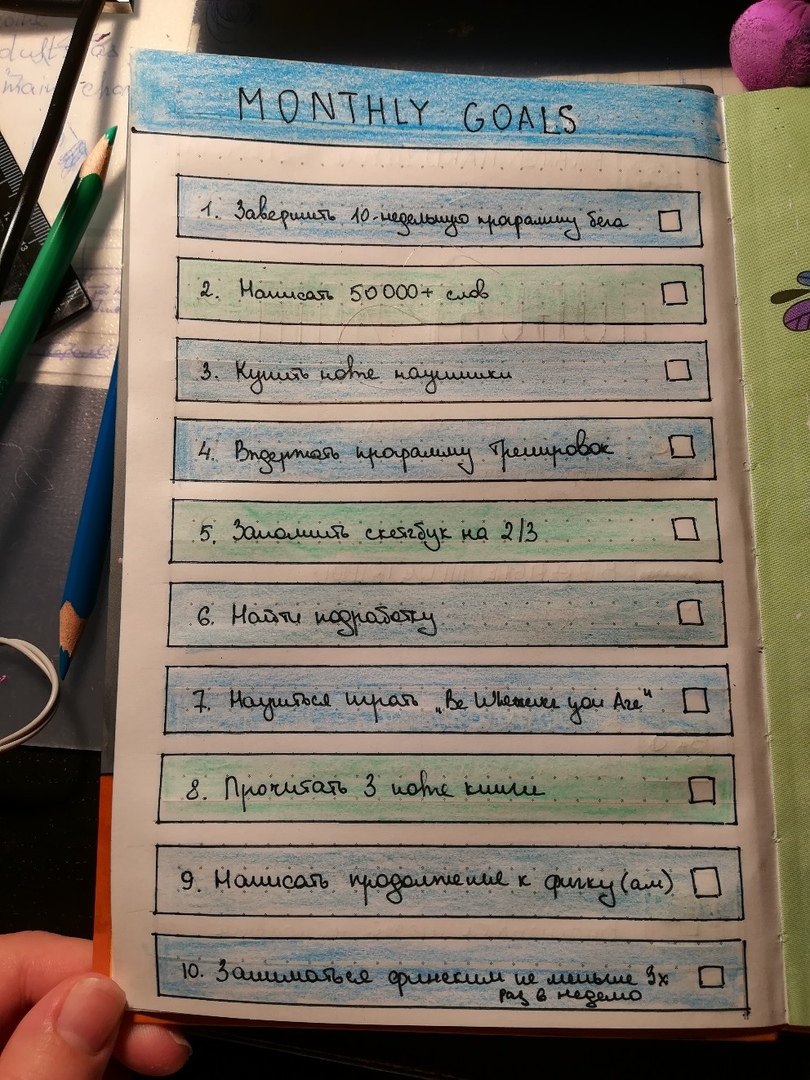 MONTHLY GOALS
1. Завершить 10-недельную программу бега
2. Написать 50000+ слов
3. Купить новые наушники
4. Выдержать программу тренировок
5. Заполнить скетчбук на 2/3
6. Найти подработку
7. Научиться играть „Be Wherever you Are"
8. Прочитать 3 новые книги
9. Написать продолжение к фику(ам)
10. Заниматься финским не меньше 3х
раз в неделю